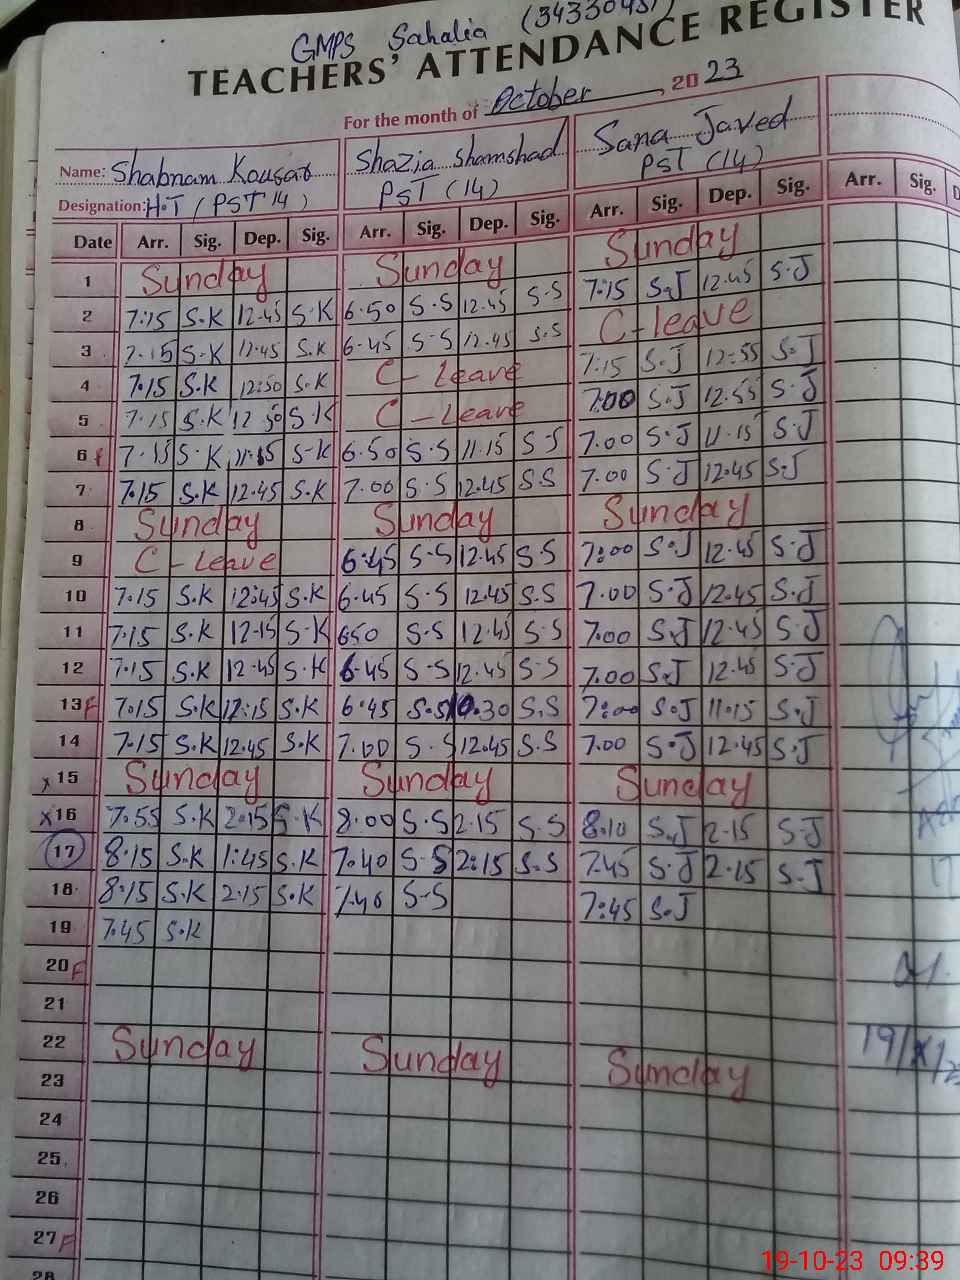 GMPS Sahalia
TEACHERS' ATTENDANCE REGISTER
For the month of October, 20 23
Name: Shabnam Kousar Shazia Shamshad Sana Javed
Designation: H.T (PST 14) PST (14) PST (14)
Date Arr. Sig. Dep. Sig. Arr. Sig. Dep. Sig. Arr. Sig. Dep. Sig. Arr. Sig.
1 Sunday Sunday Sunday
2 7:15 S.K 12.45 S.K 6.50 S.S 12.45 S.S 7:15 S.J 12.45 S.J
3 7.15 S.K 12.45 S.K 6.45 S.S 12.45 S.S C-leave
4 7.15 S.K 12:50 S.K C-Leave 7:15 S.J 12:55 S.J
5 7.15 S.K 12.50 S.K C-Leave 7.00 S.J 12.55 S.J
6 F 7.15 S.K 11.15 S.K 6.50 S.S 11.15 S.S 7.00 S.J 11.15 S.J
7 7.15 S.K 12.45 S.K 7.00 S.S 12.45 S.S 7.00 S.J 12.45 S.J
8 Sunday Sunday Sunday
9 C-Leave 6:45 S.S 12.45 S.S 7:00 S.J 12.45 S.J
10 7.15 S.K 12:45 S.K 6.45 S.S 12.45 S.S 7.00 S.J 12.45 S.J
11 7.15 S.K 12.15 S.K 6.50 S.S 12.45 S.S 7.00 S.J 12.45 S.J
12 7.15 S.K 12.45 S.K 6.45 S.S 12.45 S.S 7.00 S.J 12.45 S.J
13 F 7.15 S.K 12:15 S.K 6.45 S.S 10.30 S.S 7:00 S.J 11.15 S.J
14 7.15 S.K 12.45 S.K 7.00 S.S 12.45 S.S 7.00 S.J 12.45 S.J
x 15 Sunday Sunday Sunday
x 16 7.55 S.K 2.15 S.K 8.00 S.S 2.15 S.S 8.10 S.J 2.15 S.J
17 8.15 S.K 1:45 S.K 7.40 S.S 2:15 S.S 7.45 S.J 2.15 S.J
18 8:15 S.K 2.15 S.K 7.40 S.S 7:45 S.J
19 7.45 S.K
20 F
21
22 Sunday Sunday Sunday
23
24
25
26
27 F
28
19-10-23 09:39